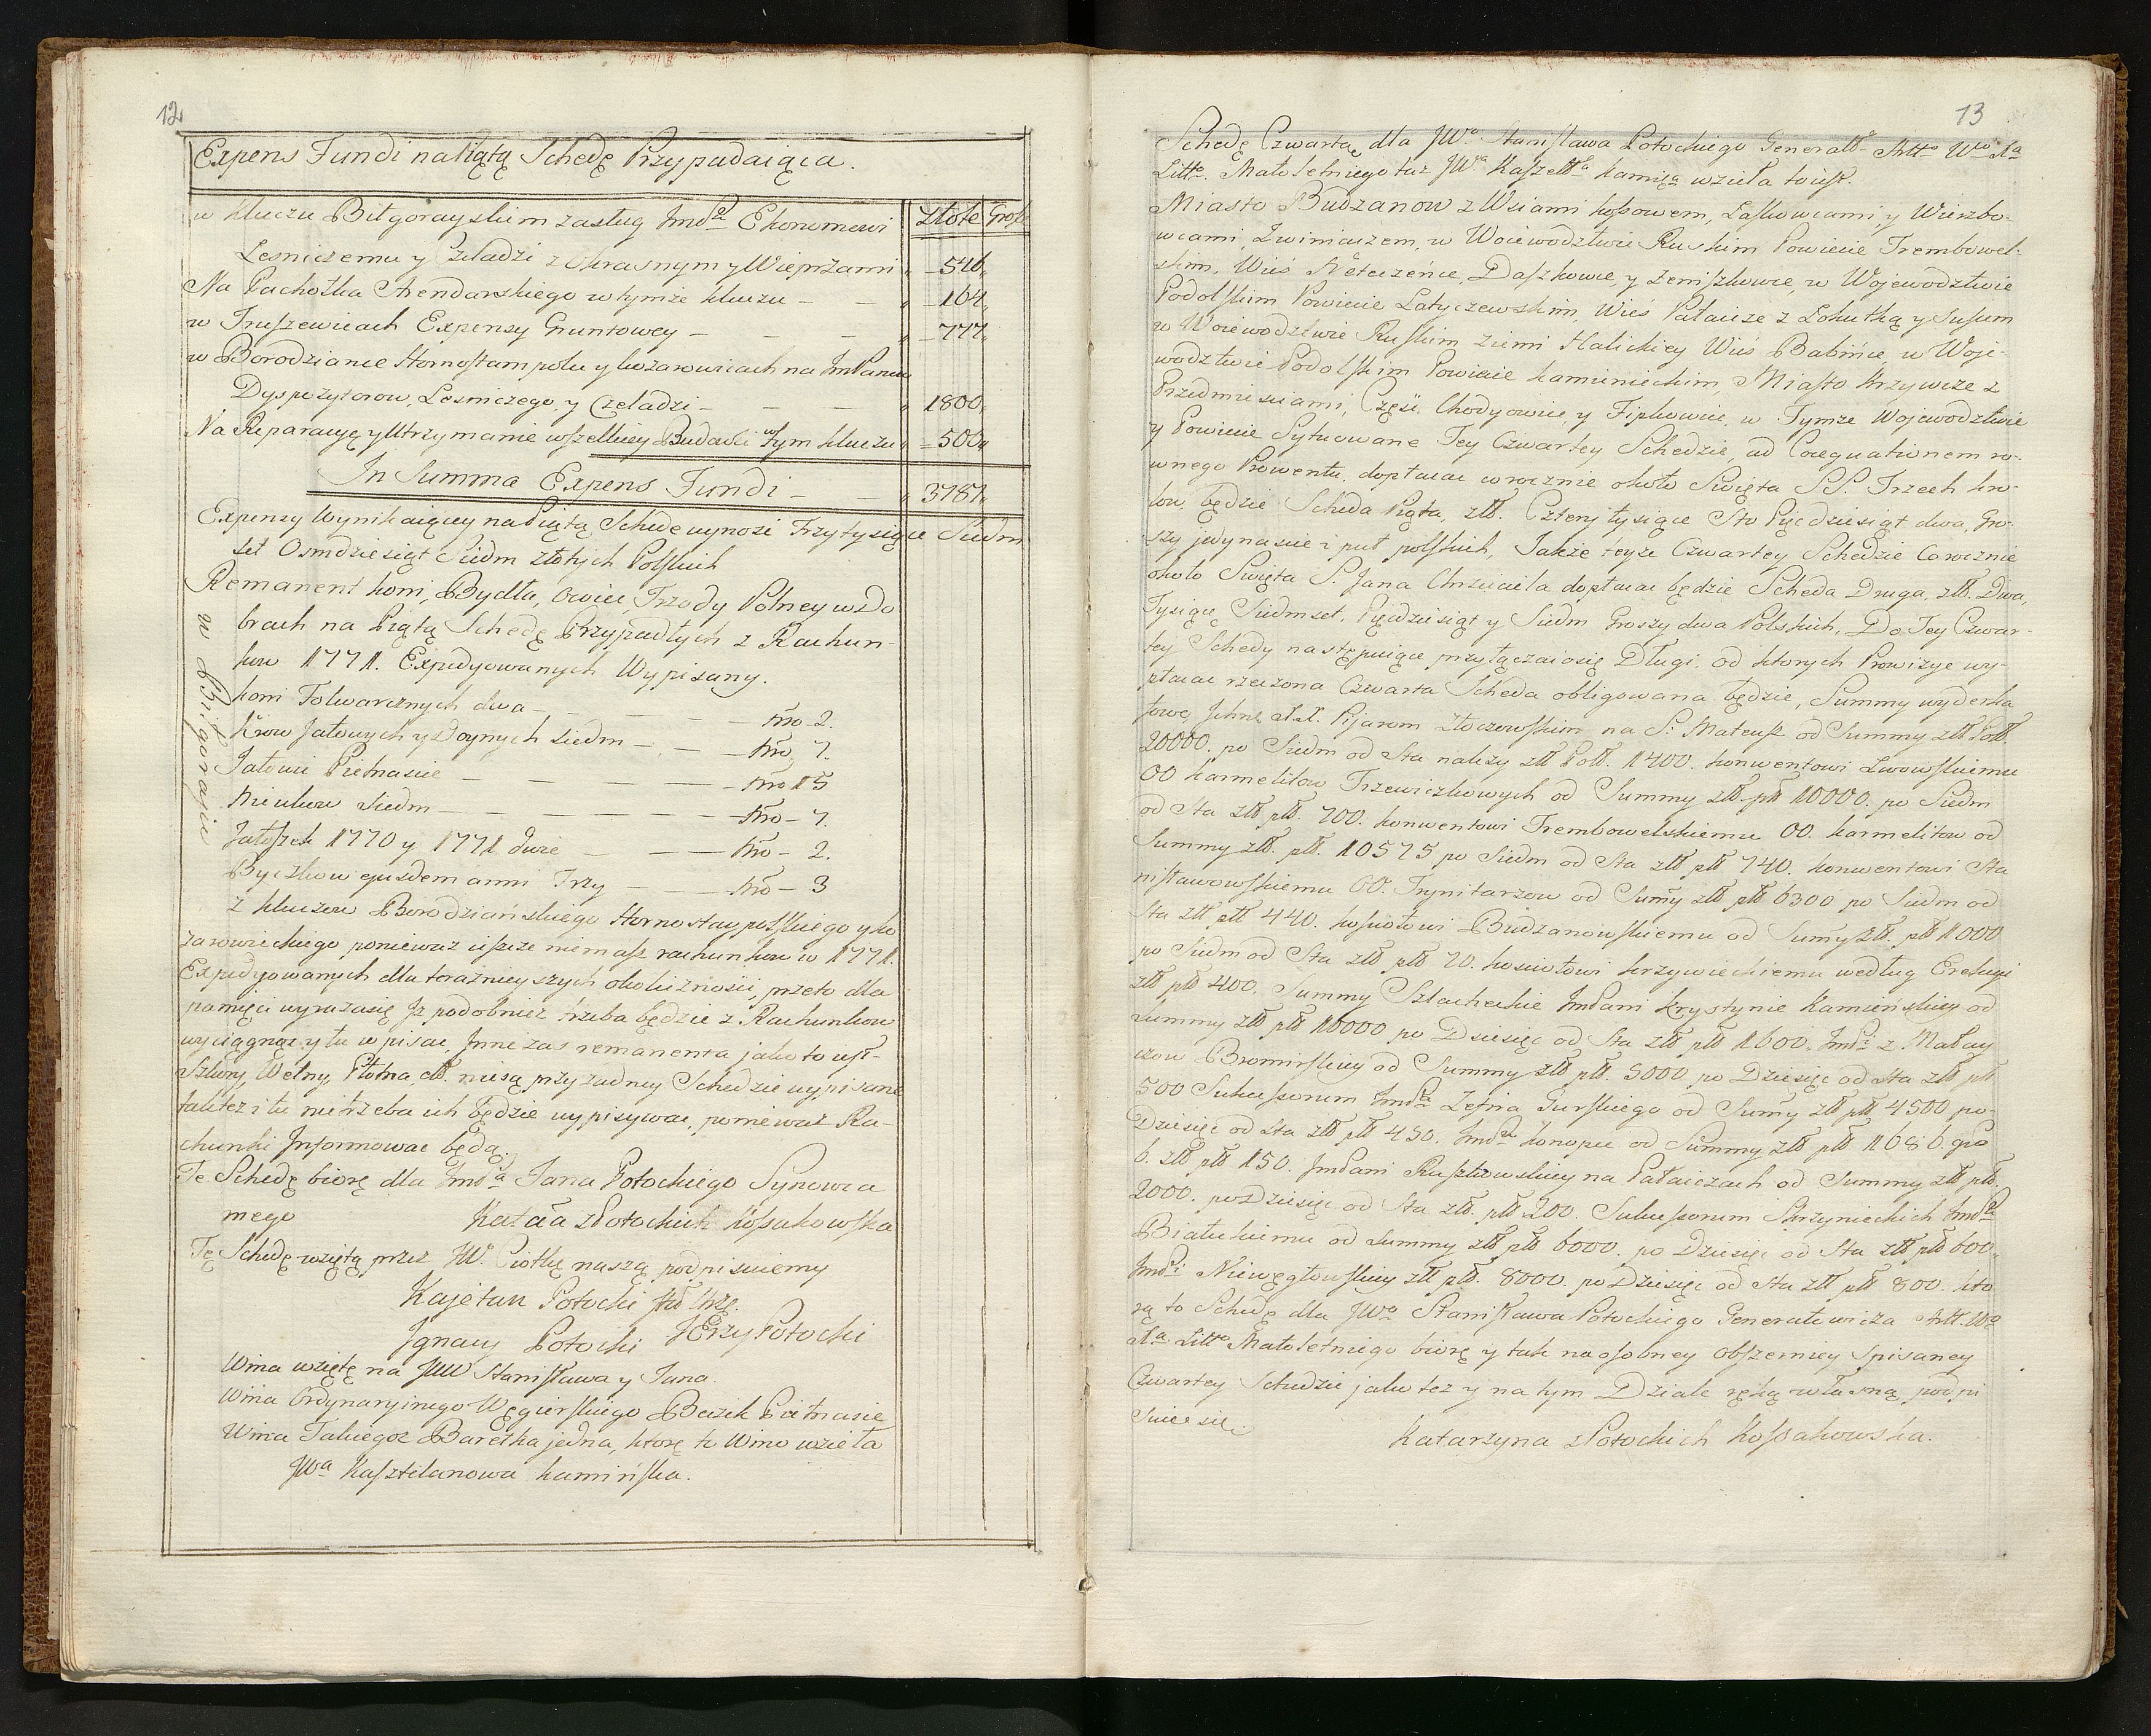 12
Expens Fundi na Piątą Schedę Przypadaiąca.
Złote Grosz
w Kluczu Biłgorayskim zasług Imdci Ekonomowi
Lesniczemu y Czeladzi z Okrasnym y Wieprzami 546
Na Pachołka Arendarskiego w tymże kluczu 164
w Truszewicach Expensy Gruntowey 777
w Borodziance Hornostampolu y kozarowicach na ImPanow
Dyspozytorow, Lesniczego, y Czeladzi 1800
Na Reparacyę y Utrzymanie wszelkiey Budowli w tym kluczu 500
In Summa Expens Fundi 3787
Expensy Wynikaiącey na Piątą Schedę wynosi Trzy tysiące Siedm
set Osmdziesiąt Siedm złotych Polskich
Remanent koni, Bydła, Owiec, Trzody Polney w Do
brach na Piątą Schedę Przypadłych z Rachun-
kow 1771. Expedyowanych Wypisany.
w Biłgoraju
koni Folwarcznych dwa Nro 2.
Krow Jałowych y Doynych siedm Nro 7.
Jałowic Pietnascie Nro 15
Siedm Nro 7.
Jałoszek 1770 y 1771 dwie Nro 2.
Byczkow ejusdem anni Trzy Nro 3
z kluczow Borodziańskiego Hornostaypolskiego y ko
zarowieckiego ponieważ ieszcze niemasz rachunkow w 1771.
Expedyowanych dla teraznieyszych okoliczności, przeto dla
pamięci wyrazasię Iz podobnież trzeba będzie z Rachunkow
wyciągnąć y tu wpisać, Inne zas remanenta jako to iest
Skury, Wełny, Płotna, ett. niesą przy zadney Schedzie wypisane
takteż i tu nie trzeba ich będzie wypisywac, ponieważ Ra-
chunki Informowac będą.
Te Schedę biorę dla Imda Jana Potockiego Synowca
mego Katar̃a z Potockich Kossakowska
Tę Schedę wziętą przez JW. Ciotkę naszą podpisuiemy
Kajetan Potocki
Ignacy Potocki JErzy Potocki
Wina wzięte na JWW Stanisława y Jana.
Wina Ordynaryinego Węgierskiego Beczek Pietnascie
Wina Takiegoz Baryłka jedna, ktore to Wino wzieła
JWa Kasztelanowa Kamińska.
13
Schedę Czwartą dla JWo Stanisława Potockiego Generałł Artt Wo Xa
Litto Małoletniego taż JWa Kasztella Kamiga wzieła to iest.
Miasto Budzanow z Wsiami kossowem, Laskowcami, y Wierzbo-
wcami, Zwiniaczem, w Woiewodztwie Ruskim Powiecie Trembowel-
skim, Wieś Neteczeńce, Daszkowce, y Zeniszkowce, w Wojewodztwie
Podolskim Powiecie Latyczewskim, Wieś Pałaicze z Łokutką y Susum
w Woiewodztwie Ruskim Ziemi Halickiey Wieś Babińce, w Woje-
wodztwie Podolskim Powiecie Kamienieckim, Miasto Krzywcze z
Przedmiesciami, Częśc. Chodyowiec, y Fipkowiec, w Tymże Wojewodztwie
y Powiecie Sytuowane Tey Czwartey Schedzie, ad Coaequationem ro-
wnego Prowentu, dopłacac corocznie około Święta SS. Trzech kro-
low będzie Scheda Piąta, złł. Cztery tysiące Sto Pięcdziesiąt dwa, Gro-
szy jedynascie i puł polskich, Takze teyże Czwartey Schedzie Corocznie
około Święta S. Jana Chrzciciela dopłacac będzie Scheda Druga, złł. Dwa,
Tysiące Siedmset, Pięcdziesiąt y Siedm Groszy dwa Polskich, Do Tey Czwar-
tey Schedy następuiące przyłączaiosię Długi, od ktorych Prowizye wy-
płacac rzeczona Czwarta Scheda obligowana będzie, Summy wyderka
fowe, Ichm: xx. Pijarom Złoczowskim na S. Mateusz od Summy złł Poll.
20000. po Siedm od Sta nalezy złł Poll. 1400. konwentowi Lwowskiemu
OO Karmelitow Trzewiczkowych od Summy złł pll 10000. po Siedm
od Sta złł pll. 700. konwentowi Trembowelskiemu OO. karmelitow od
Summy złł. pll. 10575 po Siedm od Sta złł pll 740. konwentowi Sta
nisławowskiemu OO. Trynitarzow od Sum̃y złł pll 6300 po Siedm od
Sta złł pll 440. kosciołowi Budzanowskiemu od Sum̃y złł. pll 1000
po Siedm od Sta złł pll 70. kosciołowi krzywieckiemu według Erekcyi
złł pll 400. Summy Szlacheckie ImPani Krystynie Kamieńskiey od
Summy złł pll 16000 po Dziesięc od Sta złł pll 1600. Imdci z Małay
czow Bromirskiey od Summy złł pll. 5000 po Dziesięc od Sta złł pll
500 Sukcessorum Imda Gurskiego od Sum̃y złł pll 4500 po-
Dziesięc od Sta złł pll 450. Imdci konopce od Sum̃y złł pll 1686 gro
6. złł pll 150. ImPani Ruszkowskiey na Pałaiczach od Summy złł pll.
2000. po Dziesięc od Sta złł. pll 200. Sukcessorum Skrzynieckich Imda
Białeckiemu od Summy złł pll 6000. po Dziesięc od Sta złł pll 600.
Imdci Niewęgłowskiey złł pll. 8000. po Dziesięc od Sta złł pll 800. kto
rą to Schedę dla JWo Stanisława Potockiego Generałewicza Artt. Wo
Xa Litto Małoletniego biorę y tak na osobney obszerniey Spisaney
Czwartey Schedzie jako też y na tym Dziale ręką własną podpi
suiesię.
Katarzyna z Potockich Kossakowska.